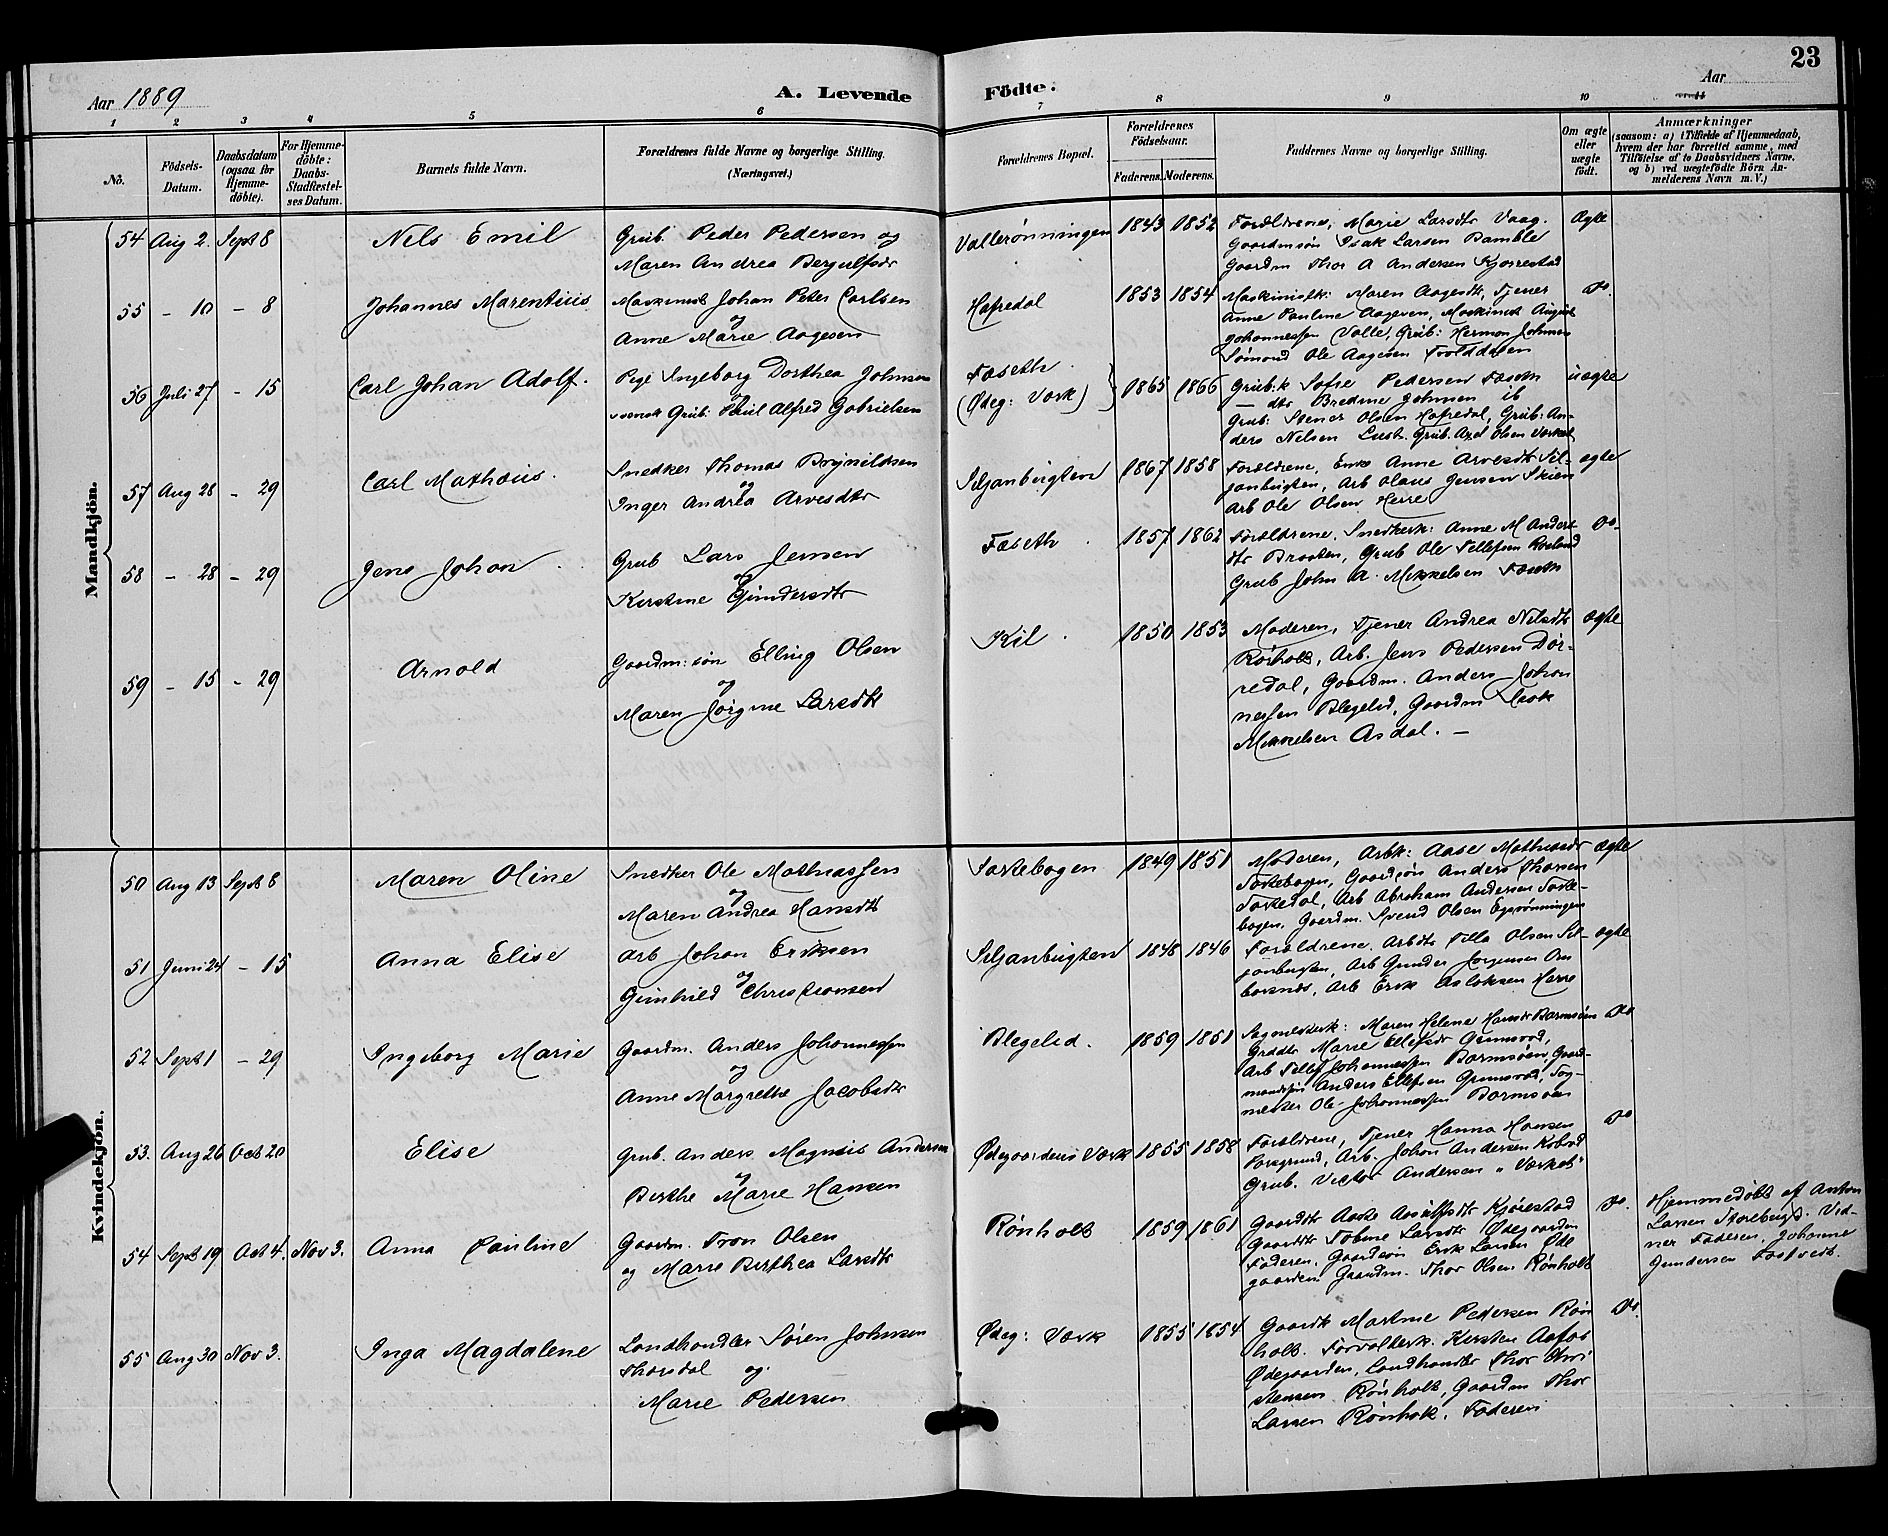 23
Aar 1889
A. Levende
Födte.
Aar
1 2 3 4 5 6 7 8 9 10 11
No.
Födsels-
Datum.
Daabsdatum
(ogsaa for
Hjemme-
döbte).
For Hjemme-
döbte:
Daabs-
Stadfæstel-
ses Datum.
Barnets fulde Navn.
Forældrenes fulde Navne og borgerlige Stilling.
(Næringsvei.)
Forældrenes Bopæl.
Forældrenes
Födselsaar.
Faderens. Moderens.
Faddernes Navne og borgerlige Stilling.
Om ægte
eller
uægte
født.
Anmærkninger
(saasom: a) i Tilfælde af Hjemmedaab,
hvem der har forrettet samme, med
Tilföielse af to Daabsvidners Navne,
og b) ved uægtefödte Börn An-
melderens Navn m. V.)
Mandkjön.
54 Aug 2. Sept 8
Nels Emil
Grub. Peder Pedersen og
Maren Andrea Bergulfsdr
Vallerønningen
1843 1852
Forældrene, Marie Larsdtr Vaag.
Gaardmsøn Isak Larsen Bamble
Gaardm Thor A Andersen Kjørrestad
Ægte
55 - 10 - 8
Johannes Marentius
Maskinist Johan Peter Carlsen
og
Anne Marie Aagesen
Hafredal
1853 1854
Maskinistk: Maren Aagesdtr, Tjener
Anne Pauline Aagesen, Maskinist August
Johannessen Valle, Grub: Herman Johnsen
Sømand Ole Aagesen Trolddalen
Do.
56 Juli 27 - 15
Carl Johan Adolf.
Pige Ingeborg Dorthea Johnsen
og
svensk Grub: Paul Alfred Gabrielsen
Fæseth.
(Ødeg: Værk)
1865 1866
Grub.k Sofie Pedersen Fæseth
— dtr Bredine Johnsen ib
Grub: Stener Olsen Hafredal, Grub: An-
ders Nelsen Grub. Axel Olsen Værket
uægte
57 Aug 28 - 29
Carl Mathæus.
Snedker Thomas Brynildsen
og
Inger Andrea Arvesdtr
Siljanbugten
1867 1858
Forældrene, Enke Anne Arvesdtr Sil-
janbugten, Arb Olaus Jensen Skien
Arb Ole Olsen Herre
ægte
58 - 28 - 29
Jens Johan
Grub Lars Jensen
og
Kirstine Gundersdtr
Fæseth
1857 1862
Forældrene, Snedkerk: Anne M Anders-
dtr Braaten, Grub Ole Tellefsen
Grub John A. Mikkelsen Fæseth
Do-
59 - 15 - 29
Arnold
Gaardm:søn Elling Olsen
og
Maren Jørgine Larsdtr
Kil
1850 1853
Moderen, Tjener Andrea Nilsdtr
Rønholt, Arb. Jens Pedersen Dør-
redal, Gaardm. Anders Johan-
nessen Blegelid, Gaardm Isak
Mikkelsen Asdal. —
ægte
Kvindekjön.
50 Aug 13 Sept 8
Maren Oline
Snedker Ole Mathiassen
og
Maren Andrea Hansdtr
Toskebogen
1849 1851
Moderen, Arbk: Aase Mathiasdr
Toskebogen, Gaardsøn Anders Thorsen
Toskedal, Arb Abraham Andersen Toske-
bogen, Gaardm. Svend Olsen
Ægte
51 Juni 24 - 15
Anna Elise
Arb Johan Eriksen
og
Gunhild Christiansen
Siljanbugten
1848 1846
Forældrene, Arbdtr Tilla Olsen Sil-
janbugten, Arb Gunder Jørgensen Om
borsnæs, Arb Erik Aslaksen Herre
ægte
52 Sept 1 - 29
Ingeborg Marie
Gaardm. Anders Johannessen
og
Anne Margrethe Jacobsdtr
Blegelid.
1859 1851
Sagmesterk: Maren Helene Hansdr Barmsøen
Grddtr Marie Ellefsdr Grunsvod,
Arb Tellef Johannessen Barmsøen, Gaard-
mandssøn Anders Ellefsen Grunsvod, Sag-
mester Ole Johannessen Barmsøen
Do
53. Aug 26 Oct 20
Elise
Grub. Anders Magnus Andersen
og
Birthe Marie Hansen
Ødegaardens Værk
1855 1858
Forældrene, Tjener Hanna Hansen
Porsgrund, Arb. Johan Andersen
Grub. Victor Andersen "Værket"
Do
54 Sept 19 Oct 4. Nov 3.
Anna Pauline
Gaardm. Tron Olsen
og Marie Birthea Larsdtr
Rønholt
1859 1861
Gaarddtr Aaste Kjørestad
Gaarddtr Tobine Larsdtr Ødegaarden
Faderen, Gaardsøn Erik Larsen Øde
gaarden Gaardm. Thor Olsen Rønholt
Do.
Hjemmedøbt af Anton
Larsen Vid-
ner Faderen, Johanne
Gundersen Tostvedt.
55 Aug 30 Nov 3.
Inga Magdalene
Landhandler Søren Johnsen
Thorsdal og
Marie Pedersen
Ødeg: Værk
1855 1854
Gaardk Martine Pedersen Røn
holt. Forvalterk. Kirsten Aafos
Ødegaarden, Landhandlr Thor Chri
stensen Rønholt, Gaardm Thor
Larsen Rønholt, Faderen
Do